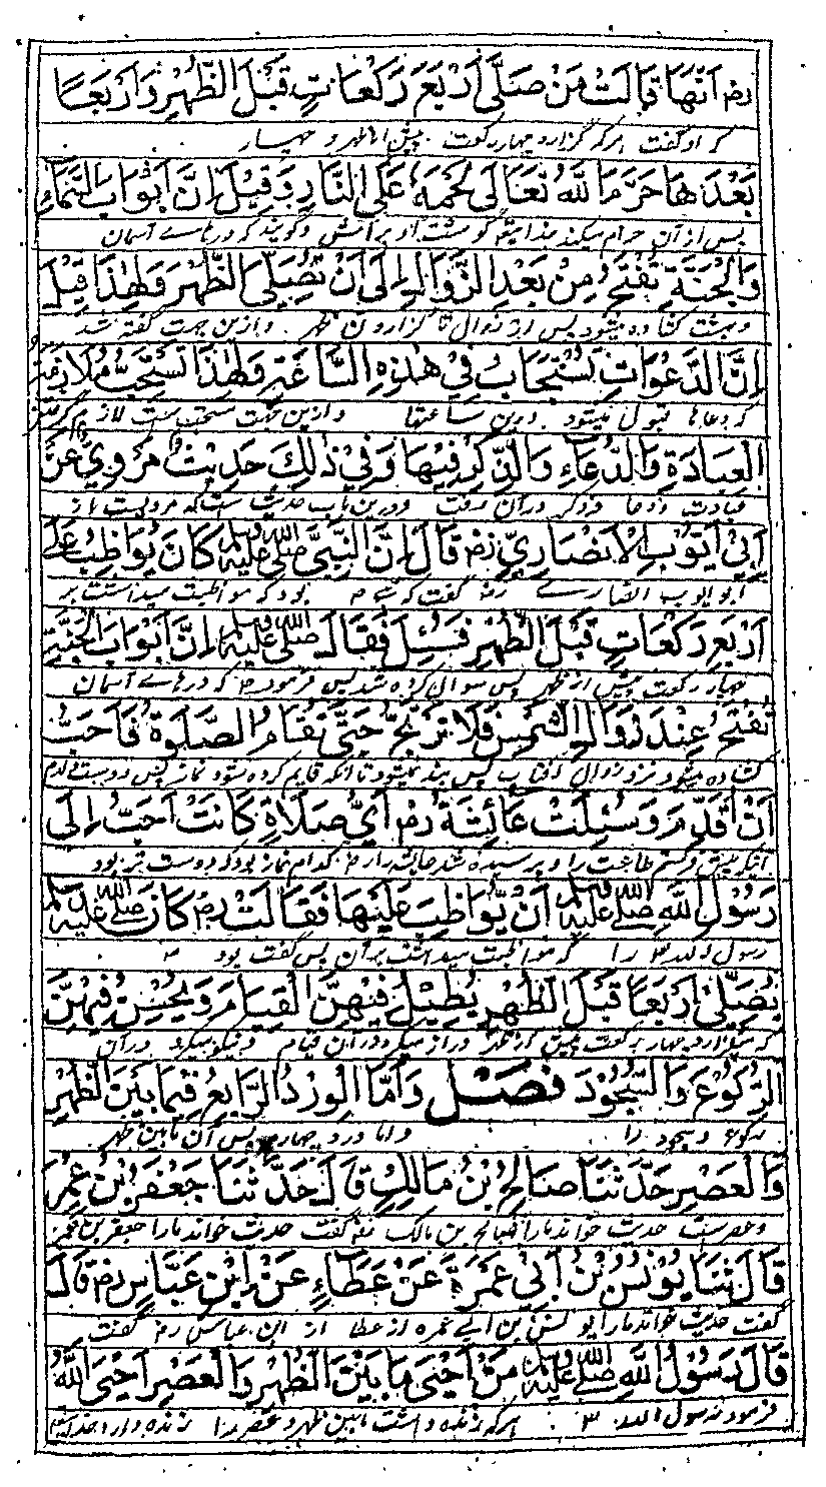 رض اَنَّهَا قَالَتْ مَنْ صَلَّى اَرْبَعَ رَكَعَاتٍ قَبْلَ الظُّهْرِ وَاَرْبَعًا
که او گفت هر که گزارد چهار رکعت پیش از ظهر و چهار
بَعْدَهَا حَرَّمَ اللّٰهُ تَعَالٰى لَحْمَهٗ عَلَى النَّارِ وَقِيْلَ اِنَّ اَبْوَابَ السَّمَاءِ
پس از آن حرام میکند خدایتعالی گوشت او بر آتش و گویند که درهای آسمان
وَالْجَنَّةِ تُفْتَحُ مِنْ بَعْدِ الزَّوَالِ اِلٰى اَنْ تُصَلِّىَ الظُّهْرَ وَلِهٰذَا قِيْلَ
و بهشت کشاده میشود پس از زوال تا گزاردن ظهر و ازین جهت گفته شد
اِنَّ الدَّعَوَاتِ تُسْتَجَابُ فِيْ هٰذِهِ السَّاعَةِ وَلِهٰذَا تُسْتَحَبُّ مُلَازَمَةُ
که دعاها قبول میشود درین ساعتها و ازین جهت مستحب است لازم گرفتن
الْعِبَادَةِ وَالدُّعَاءِ وَالذِّكْرِ فِيْهَا وَفِيْ ذٰلِكَ حَدِيْثٌ مَرْوِيٌّ عَنْ
عبادت و دعا و ذکر در آن وقت و درین باب حدیث است که مرویست از
اَبِيْ اَيُّوْبَ الْاَنْصَارِيِّ رض قَالَ اِنَّ النَّبِيَّ صَلَّى اللّٰهُ عَلَيْهِ وَسَلَّمَ كَانَ يُوَاظِبُ عَلٰى
ابو ایوب انصاری رض گفت که نبی ص بود که مواظبت میداشت بر
اَرْبَعِ رَكَعَاتٍ قَبْلَ الظُّهْرِ فَسُئِلَ فَقَالَ صَلَّى اللّٰهُ عَلَيْهِ وَسَلَّمَ اِنَّ اَبْوَابَ الْجَنَّةِ
چهار رکعت پیش از ظهر پس سوال کرده شد پس فرمود ص که درهای آسمان
تُفْتَحُ عِنْدَ زَوَالِ الشَّمْسِ فَلَا تُرْتَجُ حَتّٰى تُقَامُ الصَّلٰوةُ فَاُحِبُّ
کشاده میشود نزد زوال آفتاب پس بند نمیشود تا آنکه قایم کرده شود نماز پس دوست دارم
اَنْ اُقَدِّمَ وَسُئِلَتْ عَائِشَةُ رض اَيُّ صَلَاةٍ كَانَتْ اَحَبَّ اِلٰى
آنکه پیش فرستم طاعت را و پرسیده شد عایشه را رض کدام نماز بود که دوست تر بود
رَسُوْلِ اللّٰهِ صَلَّى اللّٰهُ عَلَيْهِ وَسَلَّمَ اَنْ يُّوَاظِبَ عَلَيْهَا فَقَالَتْ رض كَانَ صَلَّى اللّٰهُ عَلَيْهِ وَسَلَّمَ
رسول الله ص را که مواظبت میداشت بر آن پس گفت بود ص
يُصَلِّىْ اَرْبَعًا قَبْلَ الظُّهْرِ يُطِيْلُ فِيْهِنَّ الْقِيَامَ وَيُحْسِنُ فِيْهِنَّ
که میگزارد چهار رکعت پیش از ظهر دراز میکرد در آن قیام و نیکو میکرد در آن
الرُّكُوْعَ وَالسُّجُوْدَ فَصْلٌ وَاَمَّا الْوِرْدُ الرَّابِعُ فِيْمَا بَيْنَ الظُّهْرِ
رکوع و سجود را و اما ورد چهارم پس آن مابین ظهر
وَالْعَصْرِ حَدَّثَنَا صَالِحُ بْنُ مَالِكٍ قَالَ حَدَّثَنَا جَعْفَرُ بْنُ عُمَرَ
و عصر است حدیث خواند ما را صالح بن مالک گفت حدیث خواند ما را جعفر بن عمر
قَالَ ثَنَا يُوْنُسُ بْنُ اَبِيْ عَمْرَةَ عَنْ عَطَاءٍ عَنْ اِبْنِ عَبَّاسٍ رض قَالَ
گفت حدیث خواند ما را یونس بن ابی عمره از عطا از ابن عباس رض گفت
قَالَ رَسُوْلُ اللّٰهِ صَلَّى اللّٰهُ عَلَيْهِ وَسَلَّمَ مَنْ اَحْيٰى مَا بَيْنَ الظُّهْرِ وَالْعَصْرِ اَحْيَى اللّٰهُ
فرمود رسول الله ص هر که زنده داشت مابین ظهر و عصر را زنده دارد خدای